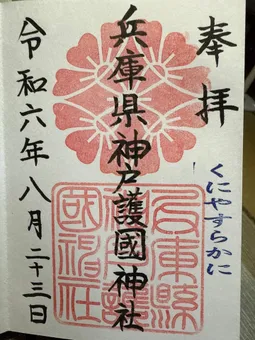 奉拝
くにやすらかに
兵庫県神戸護國神社
兵庫縣
神戸護
國神社
令和六年八月二十三日